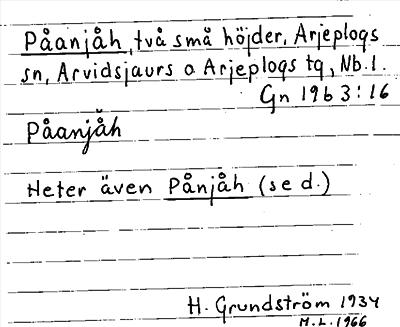 Påanjåh, två små höjder, Arjeplogs
sn, Arvidsjaurs o Arjeplogs tg, Nb. l.
Gn 19b 3:16
Påanjå̆h
Heter även Pånjåh (se d.)
H. Grundström 1934
M.L. 1966